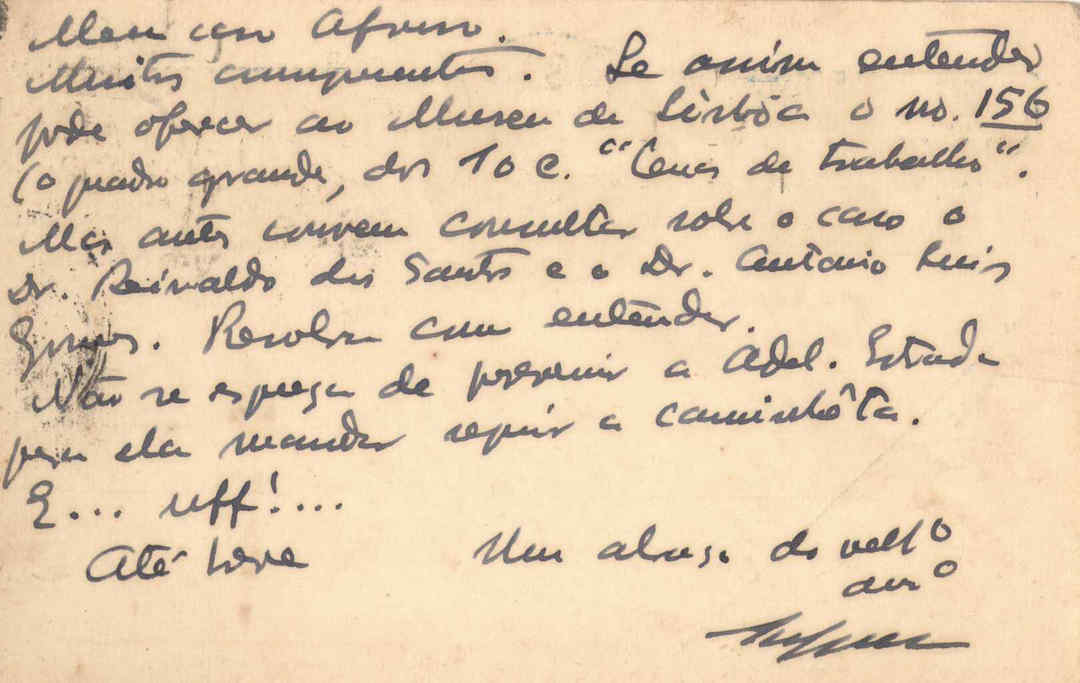 Meu caro Afonso.
Muitos cumprimentos. Se assim entender
pode oferecer ao Museu de Lisbôa o no. 156
(o quadro grande, dos 10 c. "Cenas de trabalho".
Mas antes convem consultar sobre o caso o
Dr. Reinaldo dos Santos e o Dr. Antonio Luis
Gomes. Resolva como entender.
Não se esqueça de prevenir a Adel. Estrada
para ela mandar seguir a caminhêta.
E... uff!...
Até breve Um abraço do velho
am.º